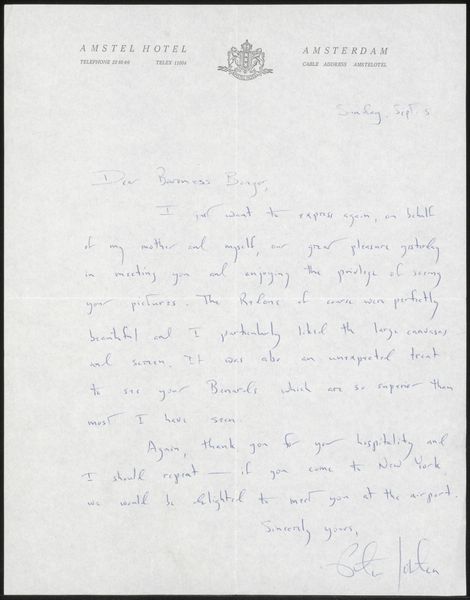 AMSTEL HOTEL
AMSTERDAM
TELEPHONE
TELEX 11004
CABLE ADDRESS AMSTELOTEL
Sunday, Sept. 5
Dear Baroness Bonger,
I just want to express again, on behalf
of my mother and myself, our great pleasure yesterday
in meeting you and enjoying the privilege of seeing
your pictures. The Redons of course were perfectly
beautiful and I particularly liked the large canvases
and screen. It was also an unexpected treat
to see your Bernards which are so superior than
most I have seen.
Again, thank you for your hospitality and
I should repeat — if you come to New York,
we would be delighted to meet you at the airport.
Sincerely yours,